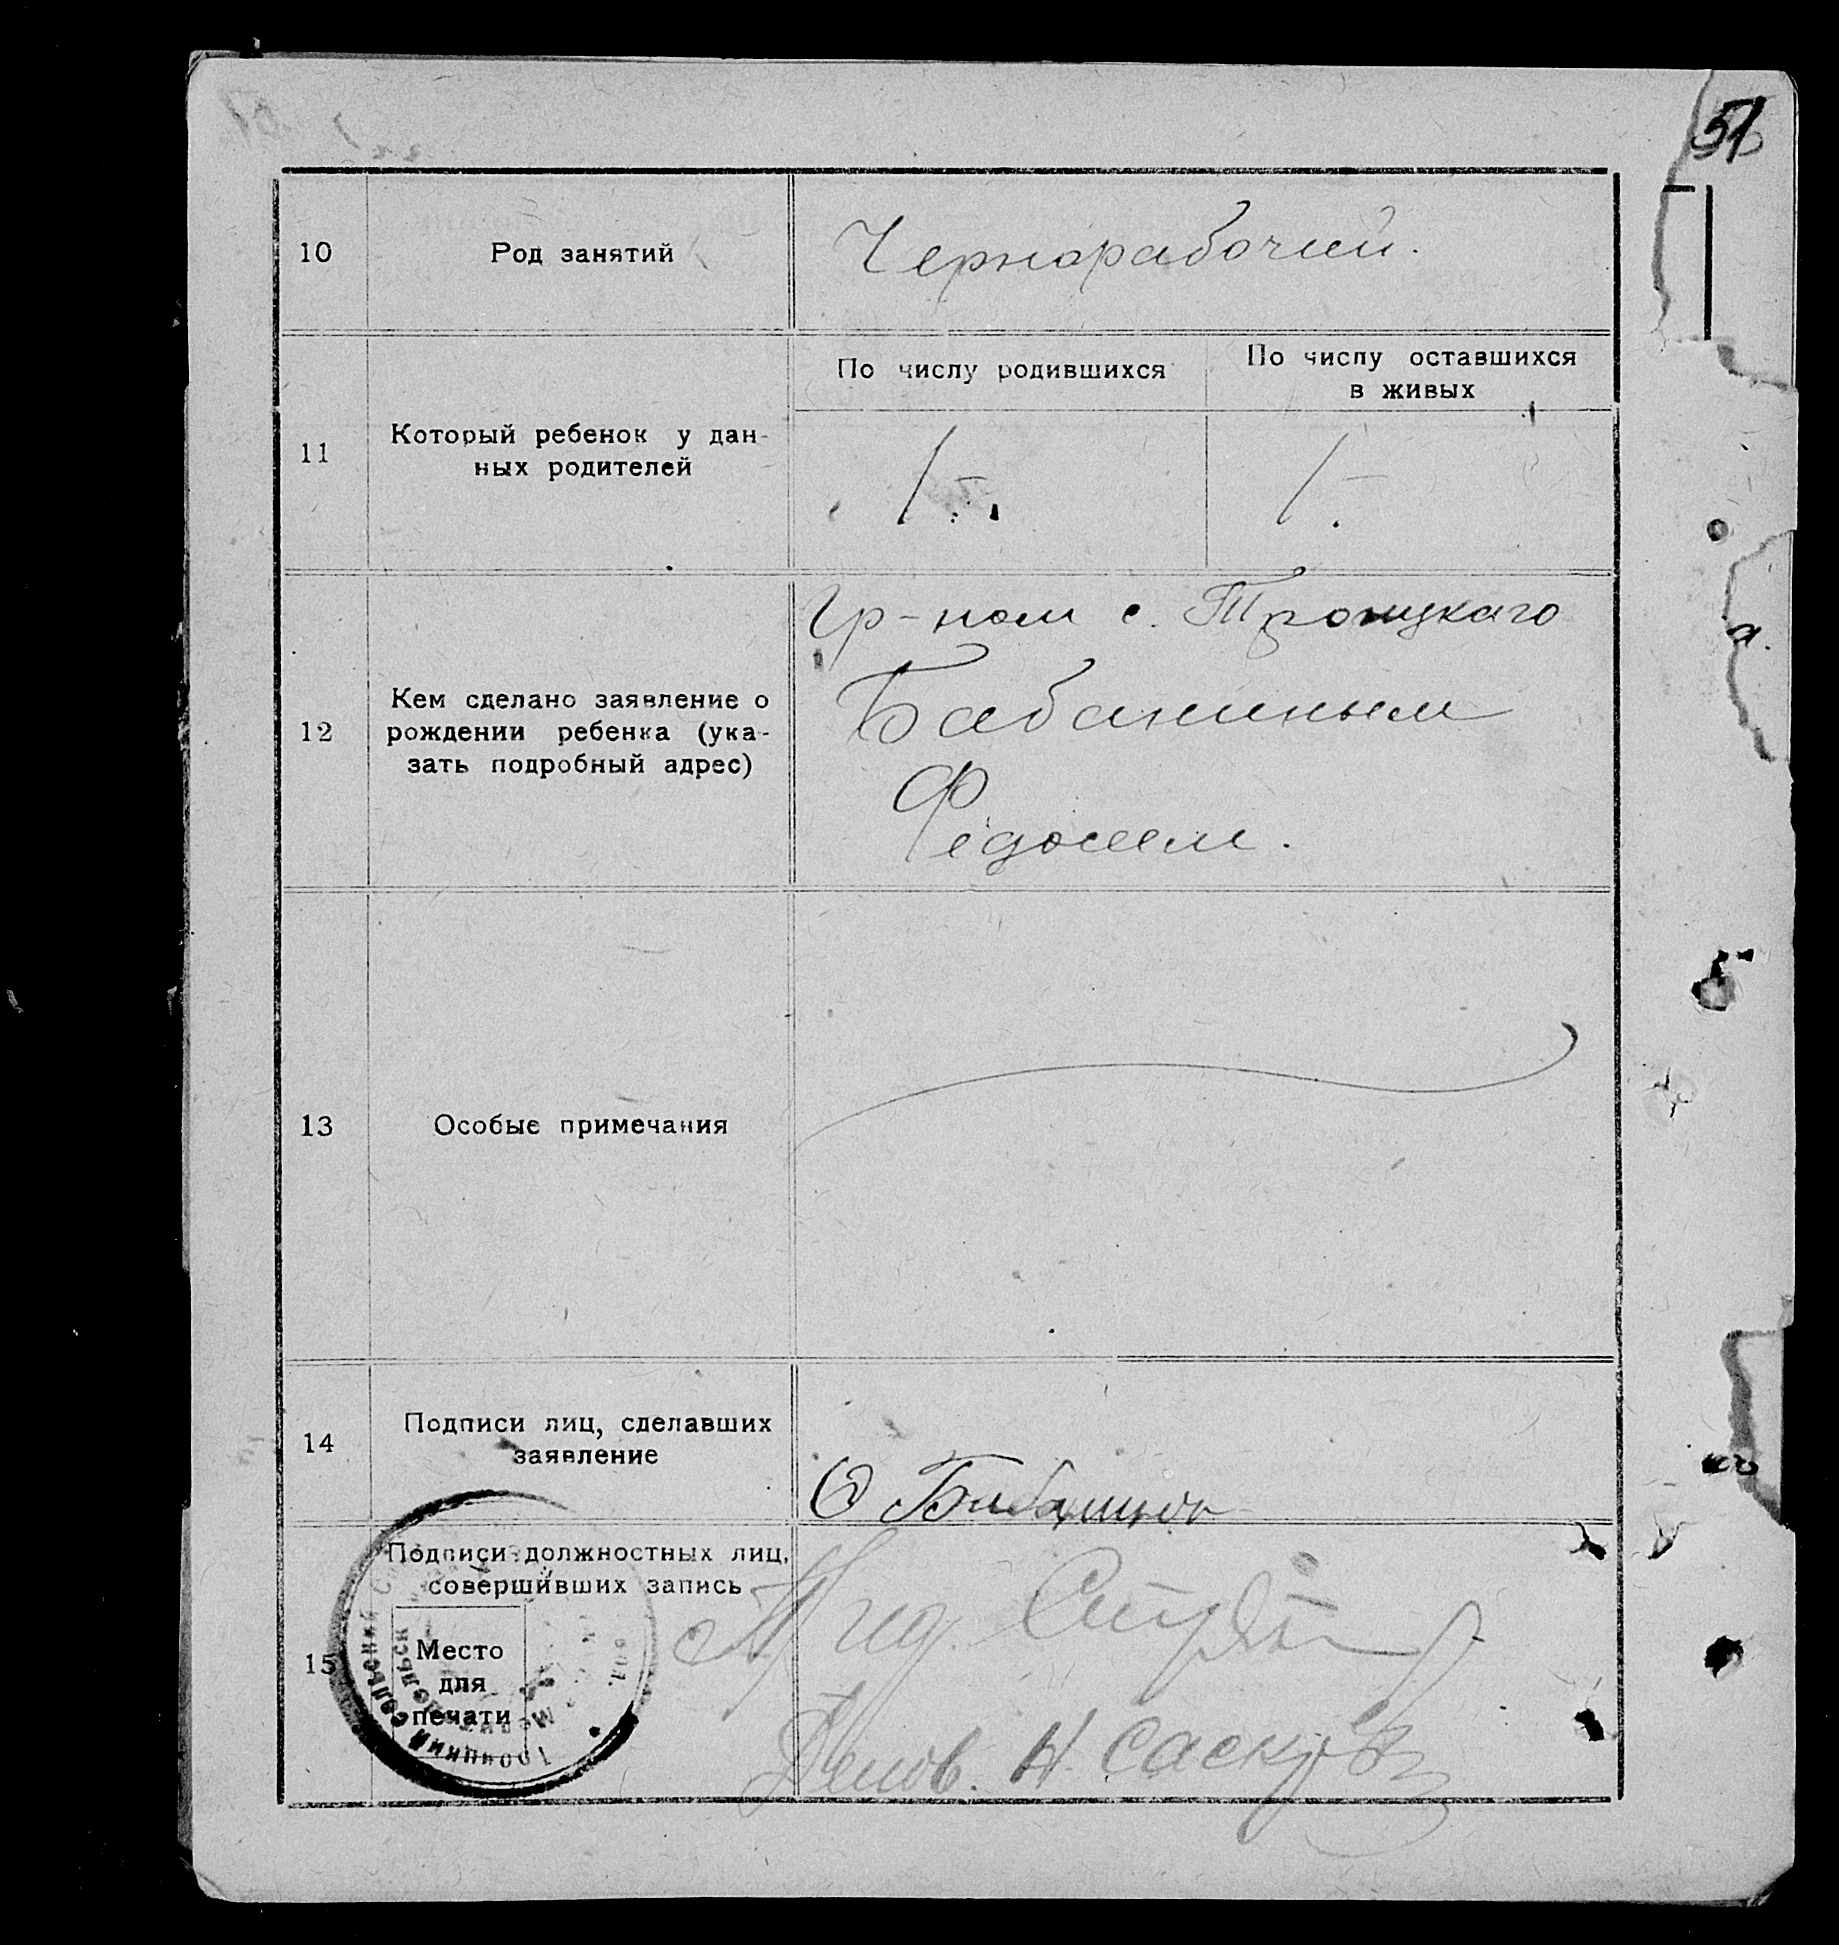 51
10
Род занятий
Чернорабочий.
11
Который ребенок у дан-
ных родителей
По числу родившихся
По числу оставшихся
в живых
1-
1-
12
Кем сделано заявление о
рождении ребенка (ука-
зать подробный адрес)
Гр-ном с. Троицкаго
Бабаниным
Федосеем.
13
Особые примечания
14
Подписи лиц, сделавших
заявление
Бабанин
15
Подписи должностных лиц,
совершивших запись
Место
для
печати
Троицкий сельский
Пред.
Делов. Н.